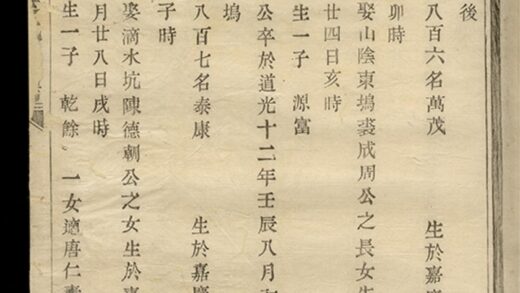 後
八百六名萬茂 生於嘉慶
卯時
娶山陰東塢裘成周公之長女生
廿四日亥時
生一子 源富
公卒於道光十二年壬辰八月
塢
八百七名泰康 生於嘉慶
子時
娶滴水坑陳德朝公之女生於嘉
月廿八日戌時
生一子 乾餘 一女適唐仁壽